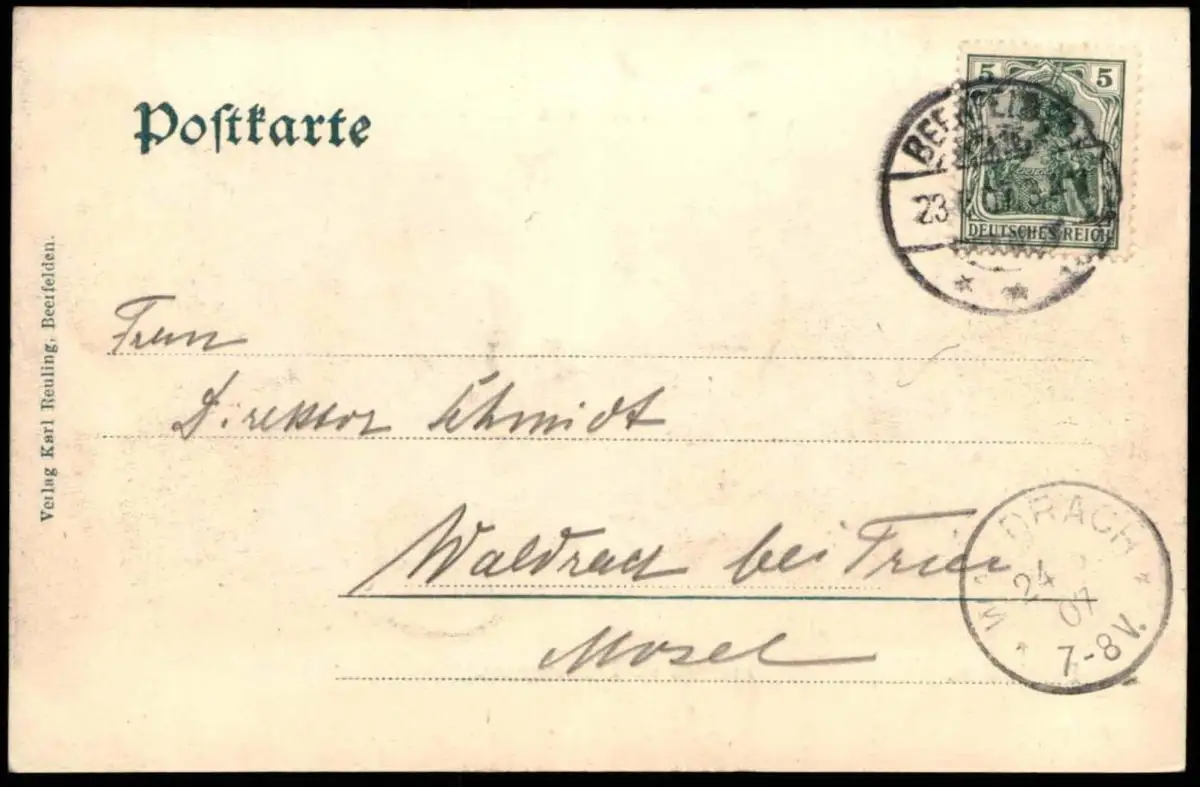 Postkarte
5 5
DEUTSCHES REICH
23 07
Frau
Direktor Schmidt
Waldrach bei Trier
Mosel
DRACH
24
07
7-8V.
Verlag Karl Reuling, Beerfelden.